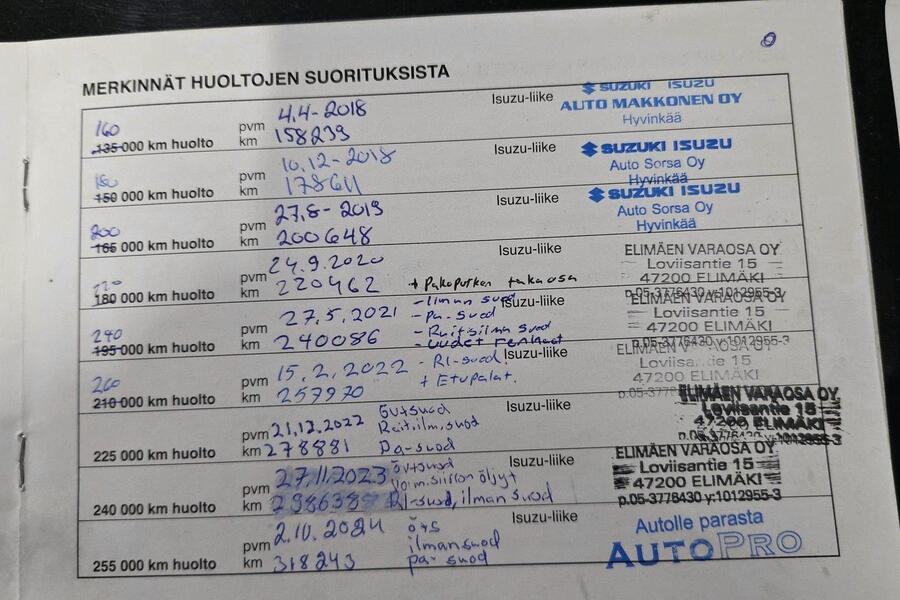 MERKINNÄT HUOLTOJEN SUORITUKSISTA
160
135 000 km huolto
pvm 4.4-2018
km 158239
Isuzu-liike
SUZUKI ISUZU
AUTO MAKKONEN OY
Hyvinkää
180
150 000 km huolto
pvm 10.12-2018
km 178611
Isuzu-liike
SUZUKI ISUZU
Auto Sorsa Oy
Hyvinkää
200
165 000 km huolto
pvm 27.8-2019
km 200648
Isuzu-liike
SUZUKI ISUZU
Auto Sorsa Oy
Hyvinkää
220
180 000 km huolto
pvm 24.9.2020
km 220462
+ Pakoputken takaosa
Isuzu-liike
ELIMÄEN VARAOSA OY
Loviisantie 15
47200 ELIMÄKI
p.05-3776430 y:1012955-3
240
195 000 km huolto
pvm 27.5.2021
km 240086
- Ilman suod
- Pa-suod
- Raitisilma suod
- uudet renkaat
Isuzu-liike
ELIMÄEN VARAOSA OY
Loviisantie 15
47200 ELIMÄKI
p.05-3776430 y:1012955-3
260
210 000 km huolto
pvm 15.2.2022
km 257970
- RI-suod.
+ Etupalat.
Isuzu-liike
ELIMÄEN
Loviisantie 15
47200 ELIMÄKI
225 000 km huolto
pvm 21.12.2022
km 278881
Raitilm.suod
Pa-suod
Isuzu-liike
ELIMÄEN VARAOSA OY
Loviisantie 15
47200 ELIMÄKI
p.05-3776430 y:1012955-3
240 000 km huolto
pvm 27.11.2023
km 298638
RI-suod, ilman suod
Isuzu-liike
ELIMÄEN VARAOSA OY
Loviisantie 15
47200 ELIMÄKI
p.05-3776430 y:1012955-3
255 000 km huolto
pvm 2.10.2024
km 318243
öts
ilmansuod
pa-suod
Isuzu-liike
Autolle parasta
AUTOPRO